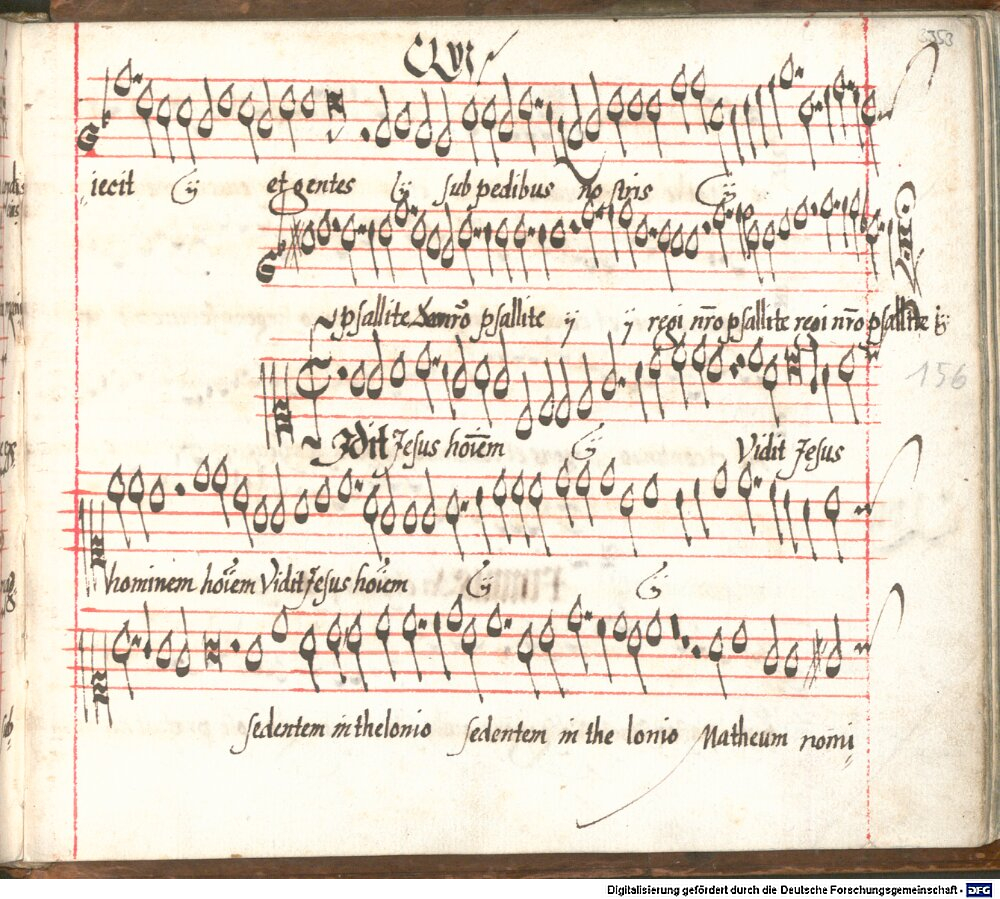 CLVI
353
iecit ij et gentes ij sub pedibus no stris ij
psallite psallite ij ij regi nr̃o psallite regi nr̃o psallite ij
156
Vidit Jesus hoı̃em ij Vidit Jesus
hominem hoı̃em Vidit Jesus hoı̃em ij ij
sedentem in thelonio sedentem in the lonio Matheum nomi
Digitalisierung gefördert durch die Deutsche Forschungsgemeinschaft - DFG